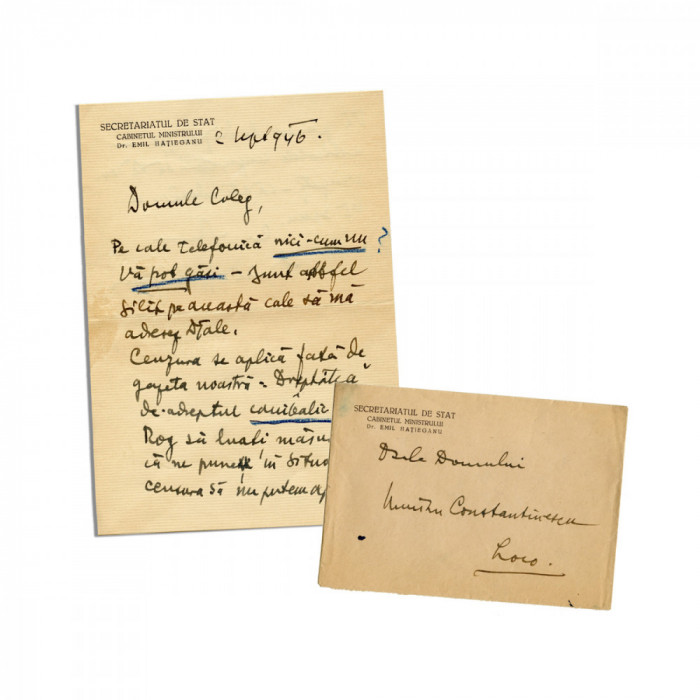 SECRETARIATUL DE STAT
CABINETUL MINISTRULUI
Dr. EMIL HAȚIEGANU
2 Sept 946.
Domnule Coleg,
Pe cale telefonică nici-cum nu ?
Vă pot găsi – sunt astfel
silit pe această cale să mă
adresez Dtale.
Cenzura se aplică față de
gazeta noastră „Dreptatea"
de-adreptul canibalic
Rog să luați măsu
că ne puneți în situa
cenzura să nu putem ap
SECRETARIATUL DE STAT
CABINETUL MINISTRULUI
Dr. EMIL HAȚIEGANU
Dsale Domnului
Constantinescu
Loco.